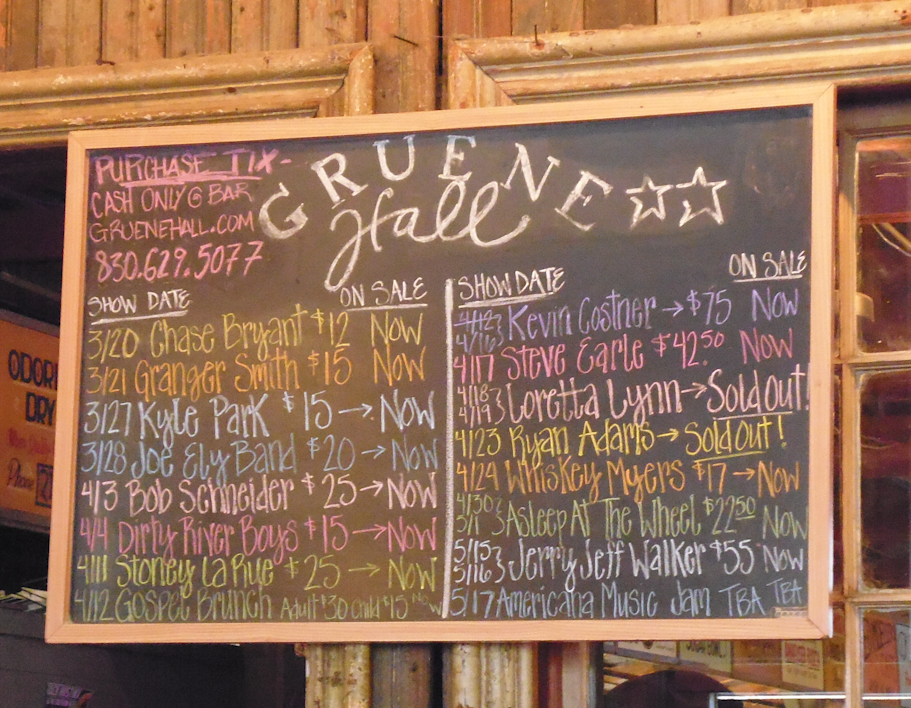 PURCHASE TIX-
CASH ONLY @ BAR
GRUENEHALL.COM
830.629.5077
GRUENE
Hall
SHOW DATE ON SALE
3/20 Chase Bryant $12 Now
3/21 Granger Smith $15 Now
3/27 Kyle Park $15 → Now
3/28 Joe Ely Band $20 → Now
4/3 Bob Schneider $25 → Now
4/4 Dirty River Boys $15 → Now
4/11 Stoney LaRue $25 → Now
4/12 Gospel Brunch Adult $30 Child $15 Now
SHOW DATE ON SALE
Kevin Costner → $75 Now
4/17 Steve Earle $42.50 Now
4/18
4/19 Loretta Lynn → Sold Out!
4/23 Ryan Adams → Sold Out!
4/24 Whiskey Myers $17 → Now
4/30
5/1 Asleep At The Wheel $22.50 Now
5/15
5/16 Jerry Jeff Walker $55 Now
5/17 Americana Music Jam TBA TBA
ODOR
DRY